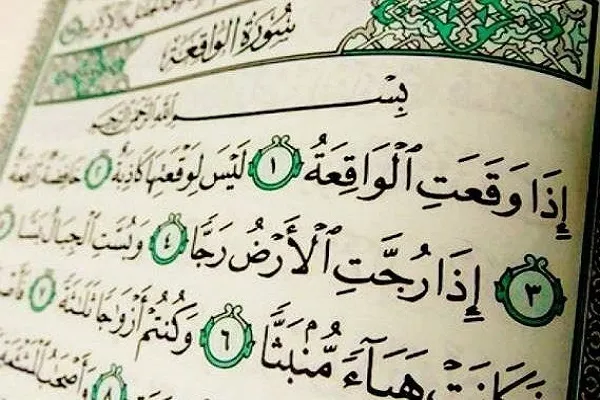 سُورَةُ الوَاقِعَة
بِسْمِ ٱللَّهِ ٱلرَّحْمَٰنِ ٱلرَّحِيمِ
إِذَا وَقَعَتِ ٱلْوَاقِعَةُ ١ لَيْسَ لِوَقْعَتِهَا كَاذِبَةٌ ٢ خَافِضَةٌ رَّافِعَةٌ
٣ إِذَا رُجَّتِ ٱلْأَرْضُ رَجًّا ٤ وَبُسَّتِ ٱلْجِبَالُ بَسًّا
هَبَآءً مُّنۢبَثًّا ٦ وَكُنتُمْ أَزْوَٰجًا ثَلَٰثَةً ٧
٨ وَأَصْحَٰبُ